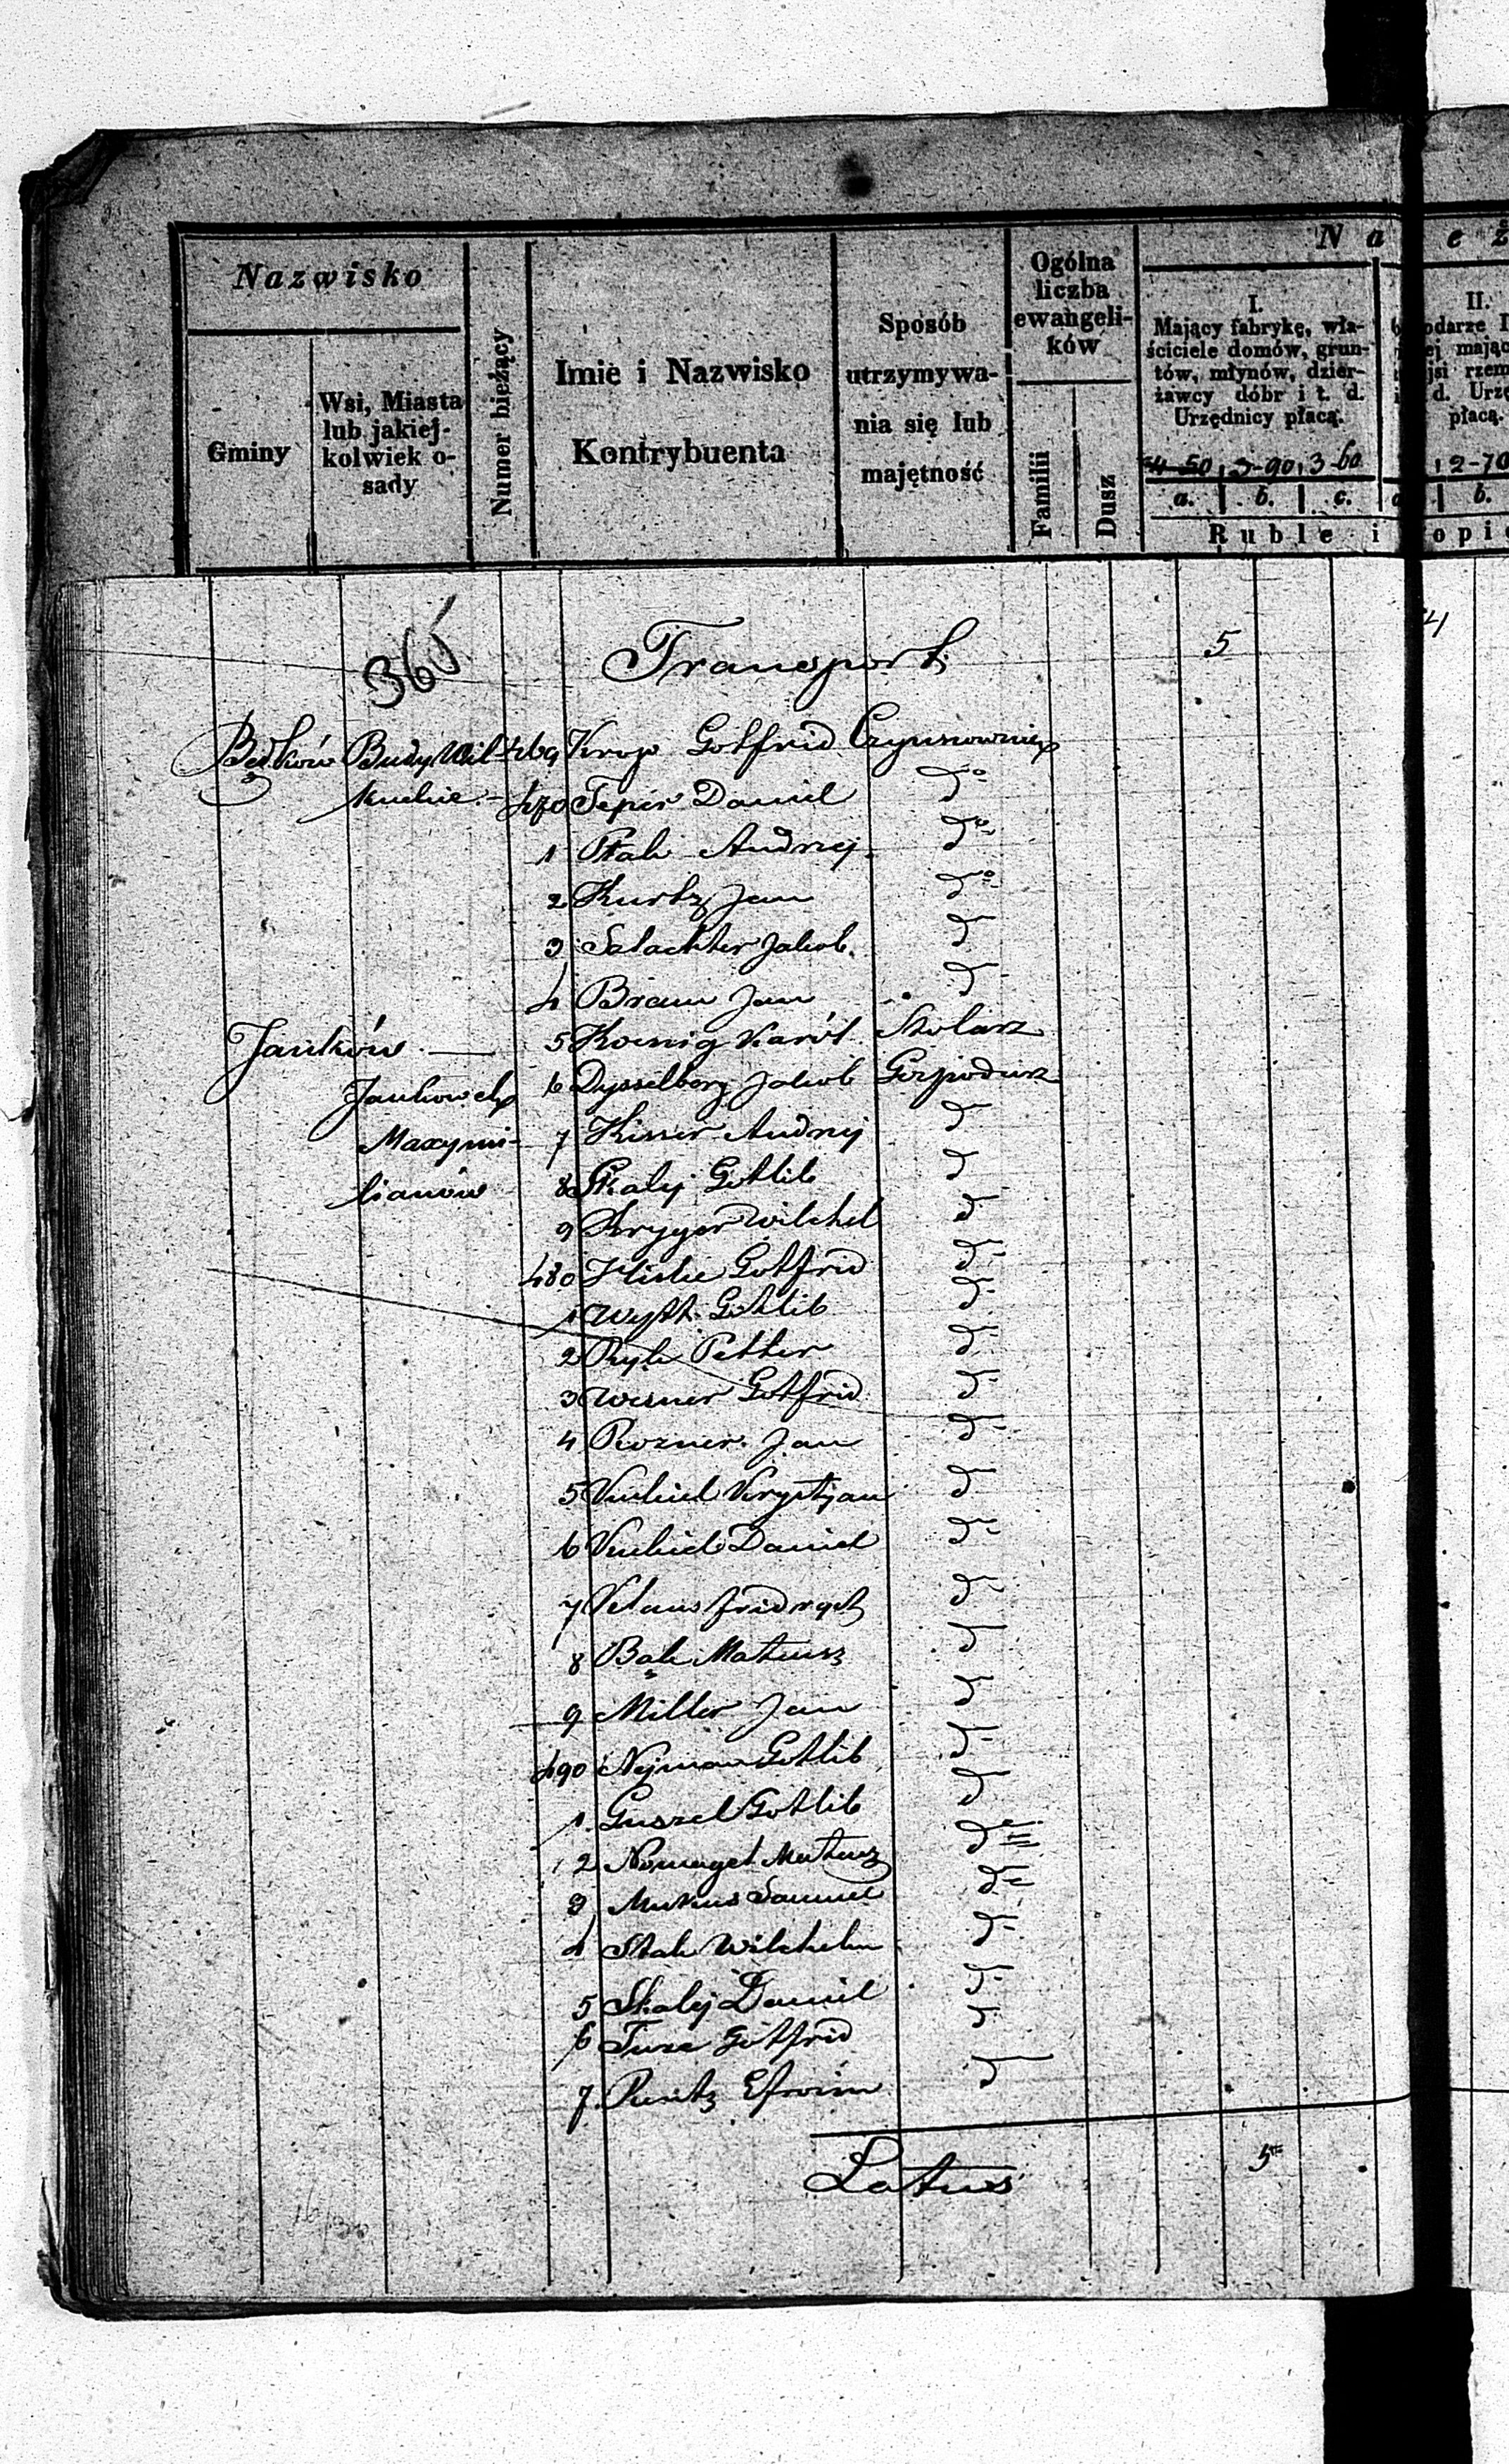 Nazwisko
Gminy
Wsi, Miasta
lub jakiej-
kolwiek o-
sady
Numer bieżący
Imie i Nazwisko
Kontrybuenta
Sposób
utrzymywa-
nia się lub
majętność
Ogólna
liczba
ewangeli-
ków
Familii
Dusz
N a e ż
I.
Mający fabrykę, wła-
ściciele domów, grun-
tów, młynów, dzier-
żawcy dóbr i t. d.
Urzędnicy płacą.
4-50 3-90 3-60
a. b. c.
II.
odarze I
ej mając
jsi rzem
d. Urzę
płacą.
2-70
b.
Ruble i opie
36
Transport 5 4
Będków Budy Wil- 469 Krop Gotfrid Czynszownicy
kuckie 470 Tepper Daniel do
1 Ptak Andrzej do
2 Kurtz Jan do
3 Salachter Jakob d
4 Braun Jan d
Janków — 5 Koenig Karól Stolarz
Jankowek 6 Dysselberg Jakob Gospodarz
Maxymi- 7 Kisner Andrzej d
lianów 8 Skalej Gotlib d
9 Kryger Wilchel d
480 Kliske Gotfrid d
1 Wyth Gotlib d
2 Ryk Petter d
3 Wesner Gotfrid d
4 Rozner Jan d
5 Kunkiel Krystyan d
6 Kunkiel Daniel d
7 Klaus Fridrych d
8 Bąk Mateusz d
9 Miller Jan d
490 Nejman Gotlib d
1 Guszel Gotlib d
2 Mateusz d
3 Samuel d
4 Stak Wilchelm d
5 Skalej Daniel d
6 Gotfrid d
7 Rentz Efroim d
Latus 5